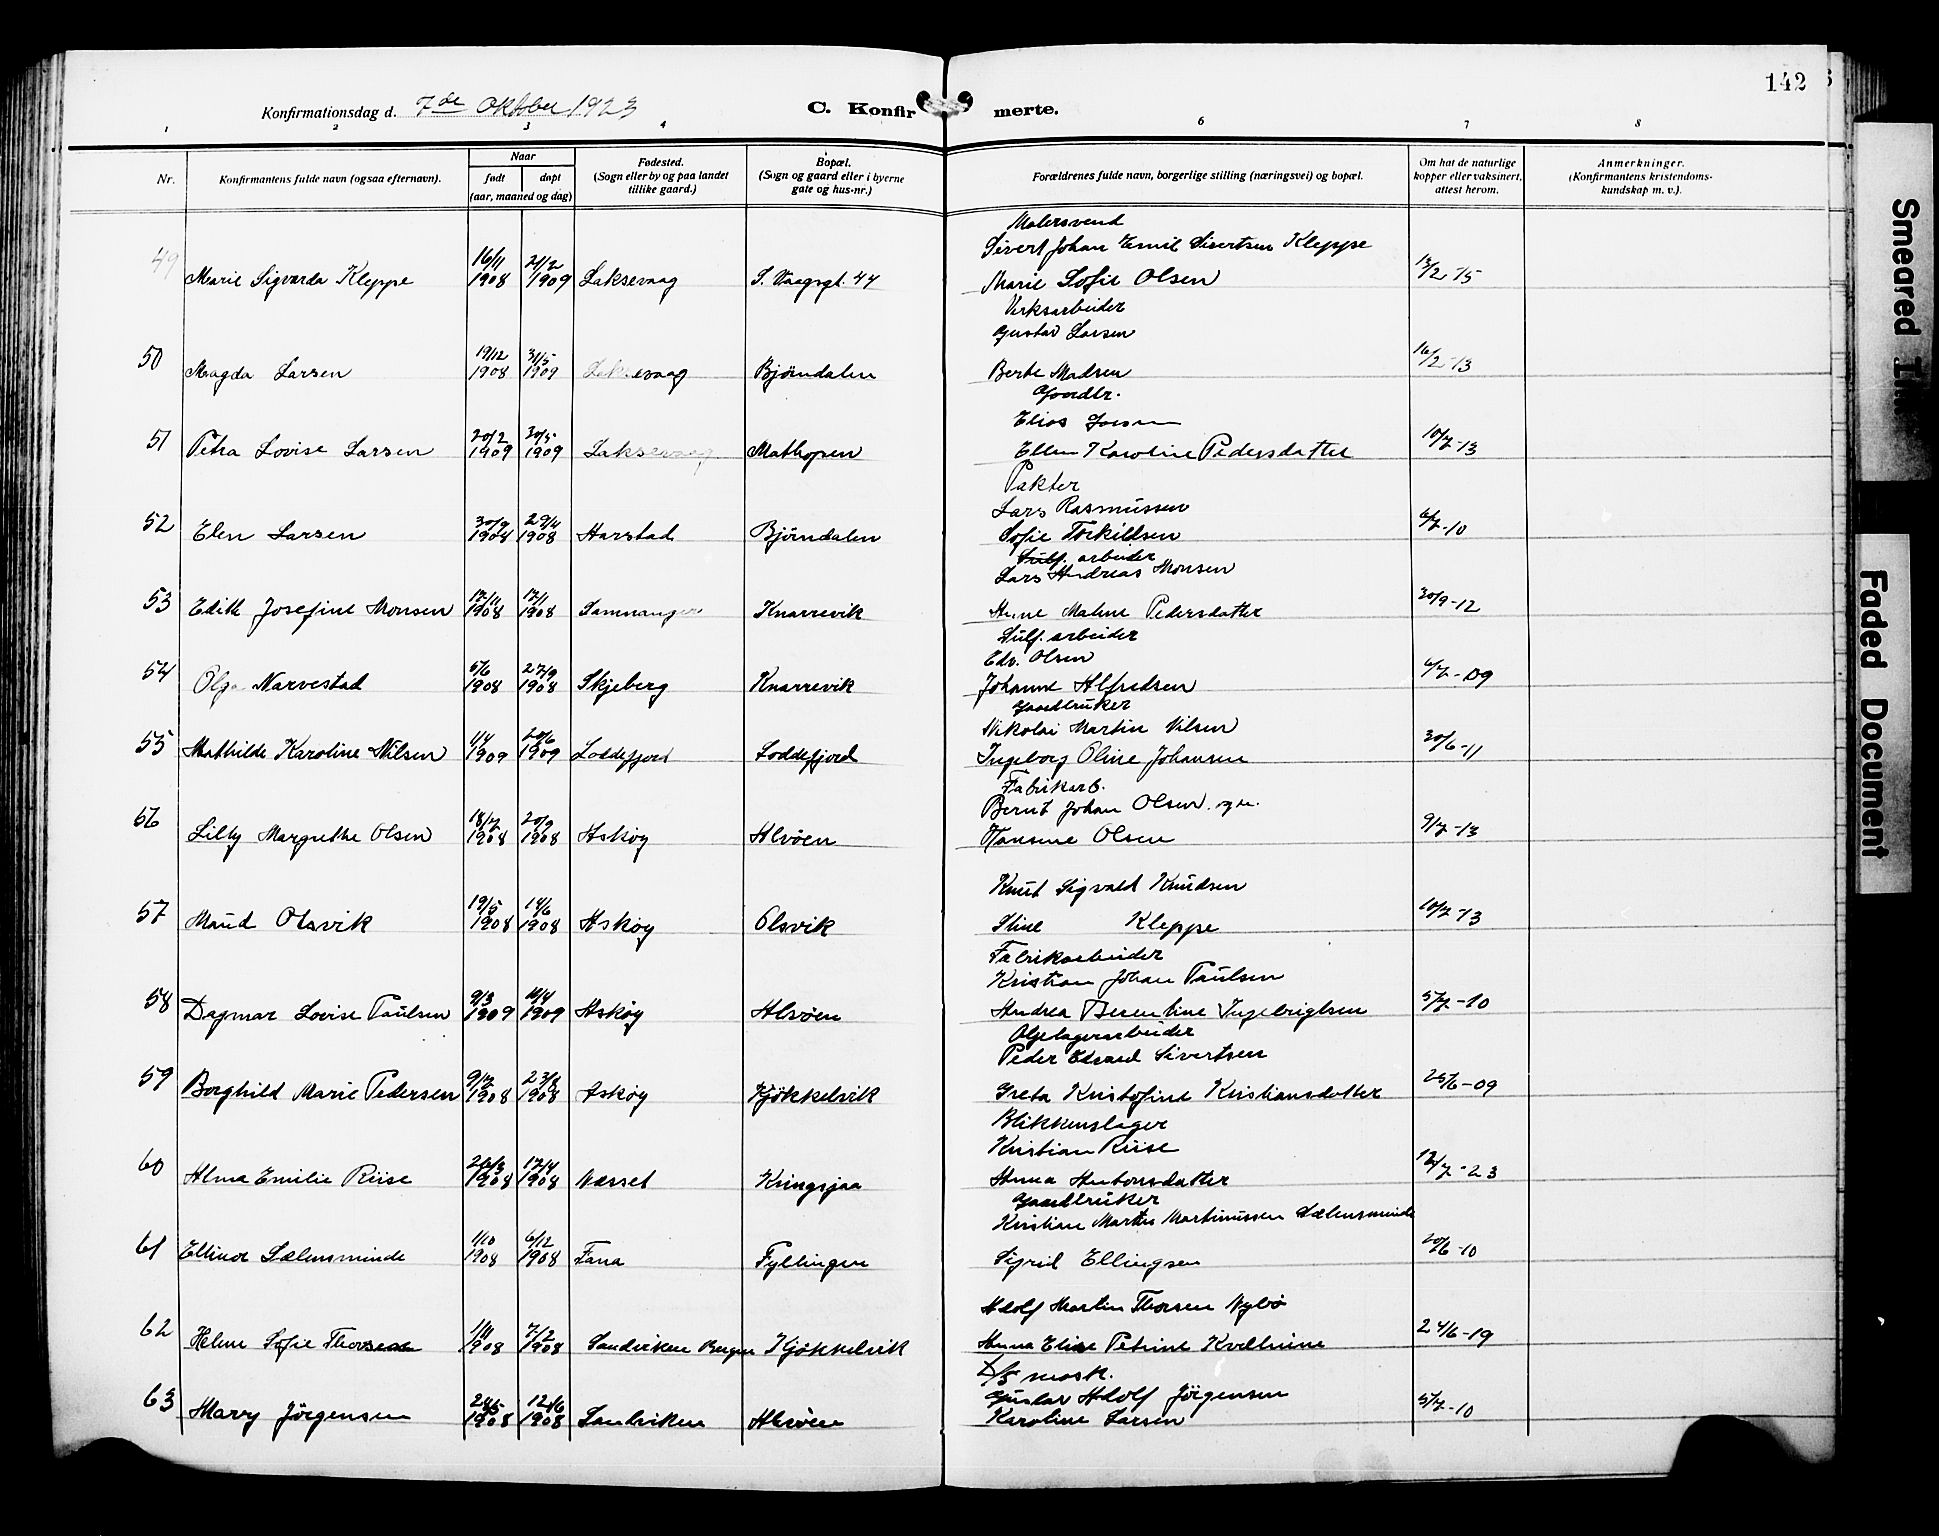 142
Konfirmationsdag d. 7de Oktober 1923 C. Konfirmerte.
1 2 3 4 5 6 7 8
Nr. Konfirmantens fulde navn (ogsaa efternavn). Naar født døpt (aar, maaned og dag) Fødested. (Sogn eller by og paa landet tillike gaard.) Bopæl. (Sogn og gaard eller i byerne gate og hus-nr.) Forældrenes fulde navn, borgerlige stilling (næringsvei) og bopæl. Om hat de naturlige kopper eller vaksinert, attest herom. Anmerkninger. (Konfirmantens kristendomskundskap m. v.).
Malersvend
Sivert Johan Emil Sivertsen Kleppe
49 Marie Sigvarda Kleppe 16/11 1908 21/2 1909 Laksevaag S. Vaagsgt. 44 Marie Sofie Olsen
Verksarbeider
Gustav Larsen
50 Magda Larsen 19/12 1908 31/5 1909 Laksevaag Bjørndalen Berte Madsen 16/2-13
Gaardbr.
Elias
51 Petra Lovise Larsen 20/2 1909 30/5 1909 Laksevaag Mathopen Ellen Karoline Pedersdatter 10/7-13
Pakter
Lars Rasmussen
52 Elen Larsen 30/9 1908 Harstad Bjørndalen Sofie Torkildsen 6/7-10
Sulf. arbeider
Lars Andreas Monsen
53 Edith Josefine Monsen 1908 1908 Samnanger Knarrevik Anne Malene Pedersdatter 30/9-12
Sulf. arbeider
Edv. Olsen
54 Olga Narvestad 5/6 1908 27/9 1908 Skjeberg Knarrevik Johanne Alfredsen 6/7-09
Gaardbruker
Nikolai Martin Nilsen
55 Mathilde Karoline Nilsen 1/4 1909 20/6 1909 Loddefjord Loddefjord Ingeborg Oline Johansen 30/6-11
Fabrikarb.
Bernt Johan Olsen
56 Lilly Margrethe Olsen 18/7 1908 20/9 1908 Askøy Alvøen Hansine Olsen 9/7-13
Knut Sigvald Knudsen
57 Maud Olsvik 19/5 1908 14/6 1908 Askøy Olsvik Stine Kleppe 10/7-13
Fabrikarbeider
Kristian Johan Paulsen
58 Dagmar Lovise Paulsen 9/3 1909 1909 Askøy Alvøen Andrea Berentine Ingebrigtsen 5/7-10
Oljelagerarbeider
Peder Edvard Sivertsen
59 Borghild Marie Pedersen 1908 23/8 1908 Askøy Kjøkkelvik Greta Kristofine Kristiansdatter 25/6-09
Blikkenslager
Kristian Riise
60 Alma Emilie Riise 1908 17/4 1908 Næsset Kringsjaa Anna Antonsdatter 12/7-23
Gaardbruker
Kristian Martin Martinussen Sælensminde
61 Ellinor Sælensminde 1/10 1908 6/12 1908 Fana Fyllingen Sigrid Ellingsen 20/6-10
Adolf Martin Thorsen Nybø
62 Helene Sofie Thorsen 1/11 1908 7/2 1908 Sandviken Bergen Kjøkkelvik Anna Elise Petrine Kvalheim 24/6-19
D/S mask.
Gustav Adolf Jörgensen
63 Mary Jörgensen 1908 12/6 1908 Sandviken Alvøen Karoline Larsen 5/7-10
Smeared Ink
Faded Document